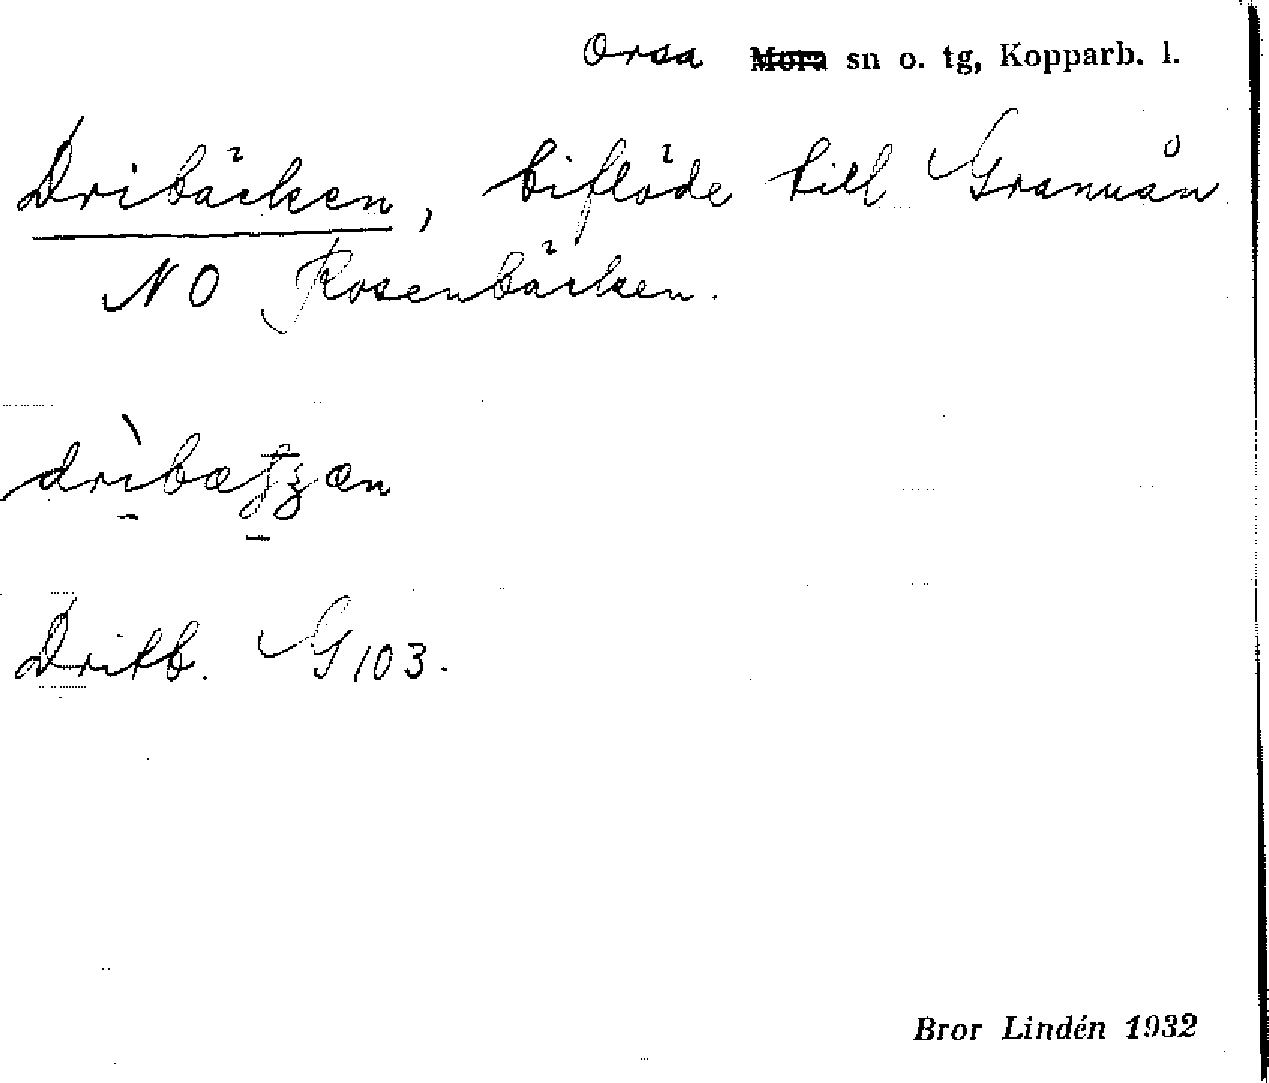 Orsa Mora sn o. tg, Kopparb. l.
Dribäcken, biflöde till Granuån
NO Rosenbäcken.
Dritb. G 103.
Bror Lindén 1932